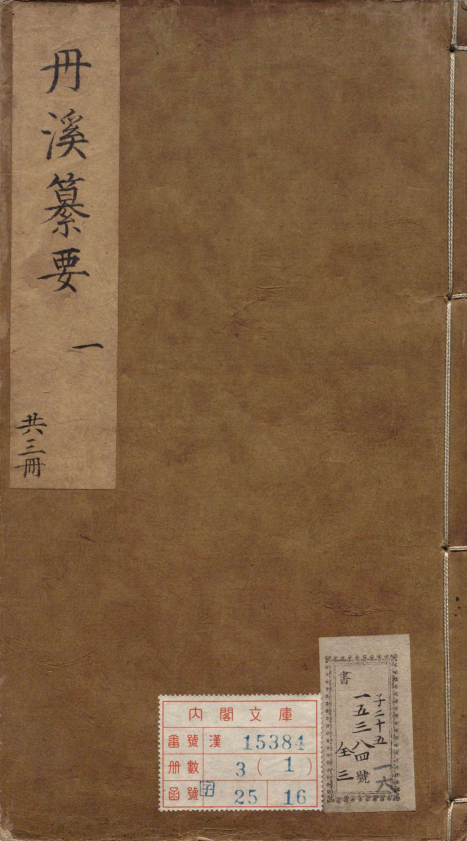 丹溪纂要
一
共三冊
書
子二十五
一五三八四號
全三
一六
內閣文庫
番號 漢 15384
冊數 3(1)
函號 子 25 16